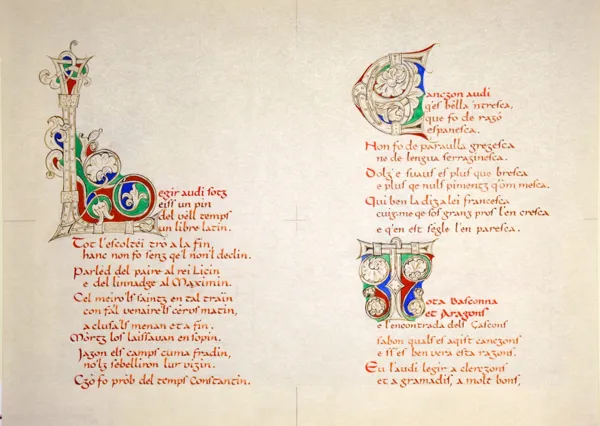 Legir audi sotz
eiss un pin
del vell temps
un libre latin.
Tot l'escoltei tro a la fin,
hanc non fo senz q'el non'l declin.
Parled del paire al rei Licin
e del linnadge al Maximin.
Cel meiro'ls saintz en tal train
con fa'l venaire'ls cervs matin,
a clusa'ls menan et a fin.
Mortz los laissavan en sopin.
Jazon els camps cuma fradin,
no'lz sebelliron lur vizin.
Czo fo prob del temps Constantin.
Canczon audi
q'es bella 'ntresca,
que fo de razo
espanesca.
Non fo de paraulla grezesca
ne de lengua serrazinesca.
Dolz' e suaus es plus que bresca
e plus qe nuls pimentz q'om mesca.
Qui ben la diz a lei francesca
cuig me qe sos granz pros l'en cresca
e q'en est segle l'en paresca.
Tota Basconna
et Aragons
e l'encontrada dels Gascons
sabon quals es aqist canczons
e ss'es ben vera esta razons.
Eu l'audi legir a clerczons
et a gramadis, a molt bons,